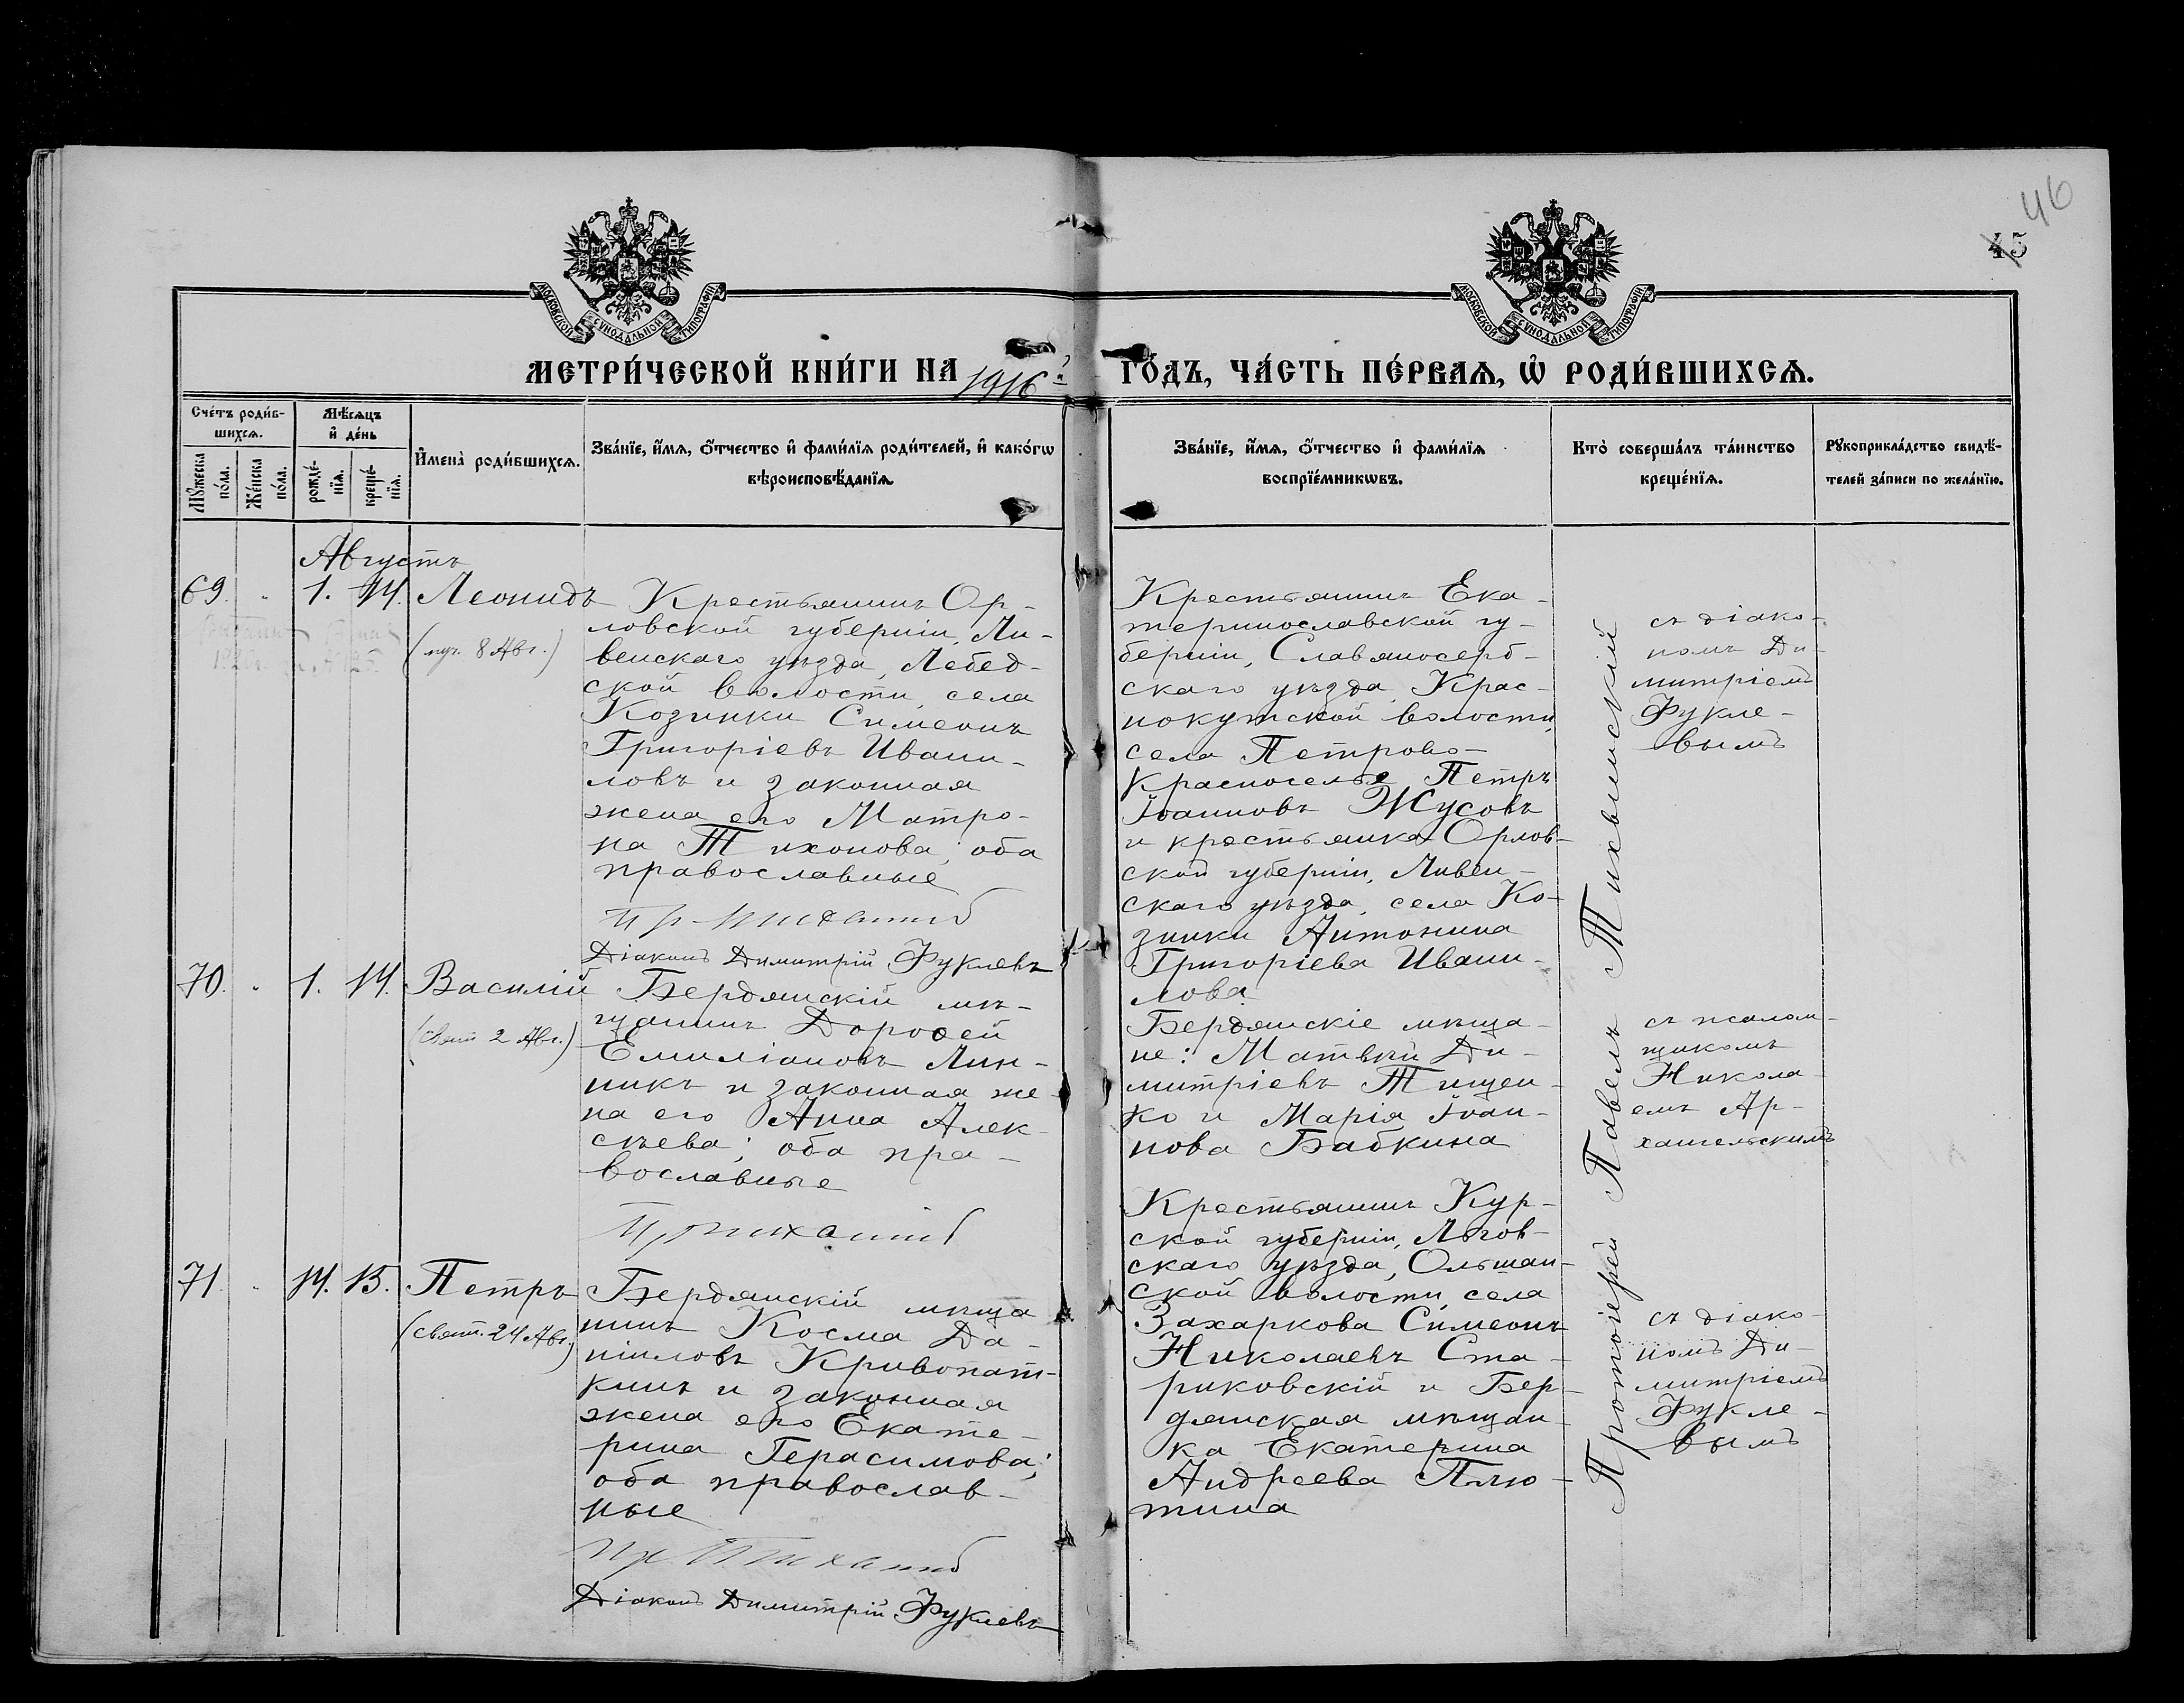 46
45
МОСКОВСКОЙ СУНОДАЛЬНОЙ ТИПОГРАФІИ
МОСКОВСКОЙ СУНОДАЛЬНОЙ ТИПОГРАФІИ
МЕТРИ́ЧЕСКОЙ КНИ́ГИ НА 1916 ГО́ДЪ, ЧА́СТЬ ПЕ́РВАЯ, Ѡ РОДИ́ВШИХСЯ.
Сче́тъ роди́в-
шихся.
Мѣ́сяцъ
и҆ де́нь
Мꙋ́жеска
по́ла.
Же́нска
по́ла.
рожде́-
нїя.
креще́-
нїя.
И҆мена̀ роди́вшихся.
Зва́нїе, и҆́мя, ѻ҆́тчество и҆ фами́лїя роди́телей, и҆ како́гѡ
вѣроисповѣ́данїя.
Зва́нїе, и҆́мя, ѻ҆́тчество и҆ фами́лїя
воспрїе́мникѡвъ.
Кто̀ соверша́лъ та́инство
креще́нїя.
Рꙋкоприкла́дство свидѣ́-
телей за́писи по жела́нїю.
Августъ
69. " 1. 14. Леонидъ
(муч. 8 Авг.)
Крестьянинъ Ор-
ловской губерніи, Ли-
венскаго уѣзда, Лебед-
ской волости, села
Козинки Симеонъ
Григоріевъ Ивани-
ловъ и законная
жена его Матро-
на Тихонова; оба
православные
Діаконъ Димитрій Фуклевъ
Крестьянинъ Ека-
теринославской гу-
берніи, Славяносерб-
скаго уѣзда, Крас-
нокутской волости,
села Петрово-
Красноселье Петръ
Іоанновъ Жусовъ
и крестьянка Орлов-
ской губерніи, Ливен-
скаго уѣзда, села Ко-
зинки Антонина
Григоріева Ивани-
лова
съ діако-
номъ Ди-
митріемъ
Фукле-
вымъ
Протоіерей Павелъ Тихвинскій
70. " 1. 14. Василій
(свят. 2 Авг.)
Бердянскій мѣ-
щанинъ Дороѳей
Емиліановъ Лин-
никъ и законная же-
на его Анна Алек-
сѣева; оба пра-
вославные
Бердянскіе мѣща-
не: Матвѣй Ди-
митріевъ Тищен-
ко и Марія Іоан-
нова Бабкина
съ псалом-
щикомъ
Никола-
емъ Ар-
хангельскимъ
71. " 14. 15. Петръ
(свят. 24 Авг.)
Бердянскій мѣща
нинъ Косма Да-
ніиловъ Кривопат-
кинъ и законная
жена его Екате-
рина Герасимова;
оба православ-
ные
Діаконъ Димитрій Фуклевъ
Крестьянинъ Кур-
ской губерніи, Льгов-
скаго уѣзда, Ольшан-
ской волости, села
Захаркова Симеонъ
Николаевъ Ста-
риковскій и Бер-
дянская мѣщан-
ка Екатерина
Андреева Плю-
тина
съ діако-
номъ Ди-
митріемъ
Фукле-
вымъ